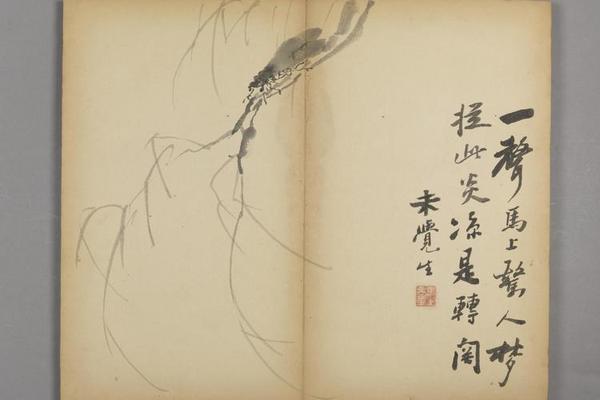 一聲馬上驚人梦
從此炎涼是轉関
未覺生